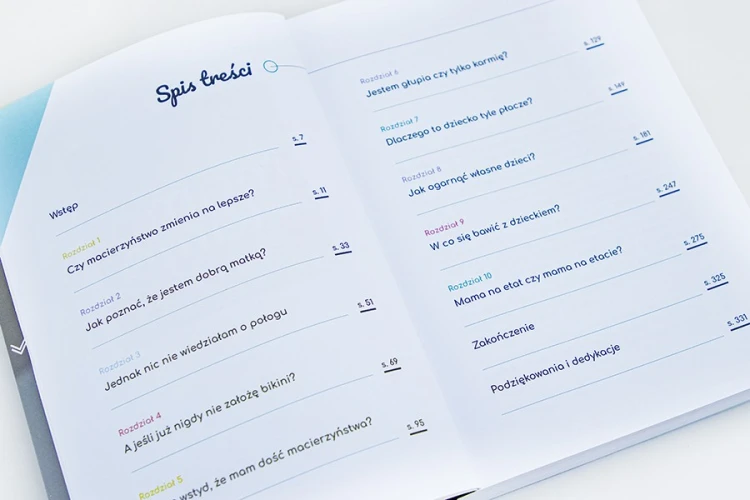 Spis treści
Wstęp s. 7
Rozdział 1
Czy macierzyństwo zmienia na lepsze? s. 11
Rozdział 2
Jak poznać, że jestem dobrą matką? s. 33
Rozdział 3
Jednak nic nie wiedziałam o połogu s. 51
Rozdział 4
A jeśli już nigdy nie założę bikini? s. 69
Rozdział 5
wstyd, że mam dość macierzyństwa? s. 95
Rozdział 6
Jestem głupia czy tylko karmię? s. 129
Rozdział 7
Dlaczego to dziecko tyle płacze? s. 149
Rozdział 8
Jak ogarnąć własne dzieci? s. 181
Rozdział 9
W co się bawić z dzieckiem? s. 247
Rozdział 10
Mama na etat czy mama na etacie? s. 275
Zakończenie s. 325
Podziękowania i dedykacje s. 331